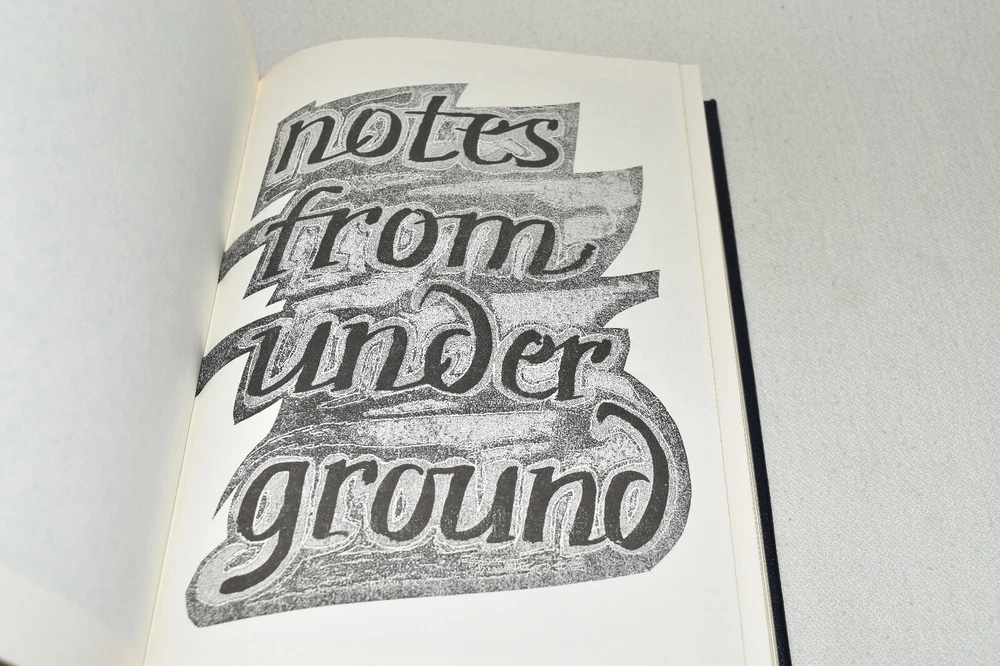 notes
from
under
ground